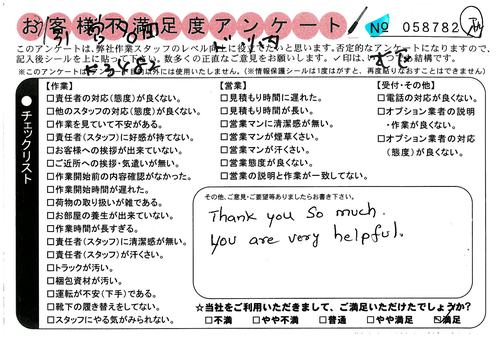 お客様不満足度アンケート
No 058782
このアンケートは、弊社作業スタッフのレベル向上に役立てたいと思います。否定的なアンケートになりますので、
記入後シールを上に貼って下さい。数多くの正直なご意見をお願いします。✓印は、
※このアンケートは
以外には使用いたしません。（※情報保護シールは1度はがすと、再度貼りなおすことはできません）
●チェックリスト
【作業】
□責任者の対応（態度）が良くない。
□他のスタッフの対応（態度）が良くない。
□作業を見ていて不安がある。
□責任者（スタッフ）に好感が持てない。
□お客様への挨拶が出来ていない。
□ご近所への挨拶・気遣いが無い。
□作業開始前の内容確認がなかった。
□作業開始時間が遅れた。
□荷物の取り扱いが雑である。
□お部屋の養生が出来ていない。
□作業時間が長すぎる。
□責任者（スタッフ）に清潔感が無い。
□責任者（スタッフ）が汗くさい。
□トラックが汚い。
□梱包資材が汚い。
□運転が不安（下手）である。
□靴下の履き替えをしてない。
□スタッフにやる気がみられない。
【営業】
□見積もり時間に遅れた。
□見積もり時間が長い。
□営業マンに清潔感が無い。
□営業マンが煙草くさい。
□営業マンが汗くさい。
□営業態度が良くない。
□営業の説明と作業が一致してない。
【受付・その他】
□電話の対応が良くない。
□オプション業者の説明
・作業が良くない。
□オプション業者の対応
（態度）が良くない。
その他、ご意見・ご要望等ありましたらお書き下さい。
Thank you so much.
You are very helpful.
★当社をご利用いただきまして、ご満足いただけたでしょうか？
□不満 □やや不満 □普通 □やや満足 ☑満足